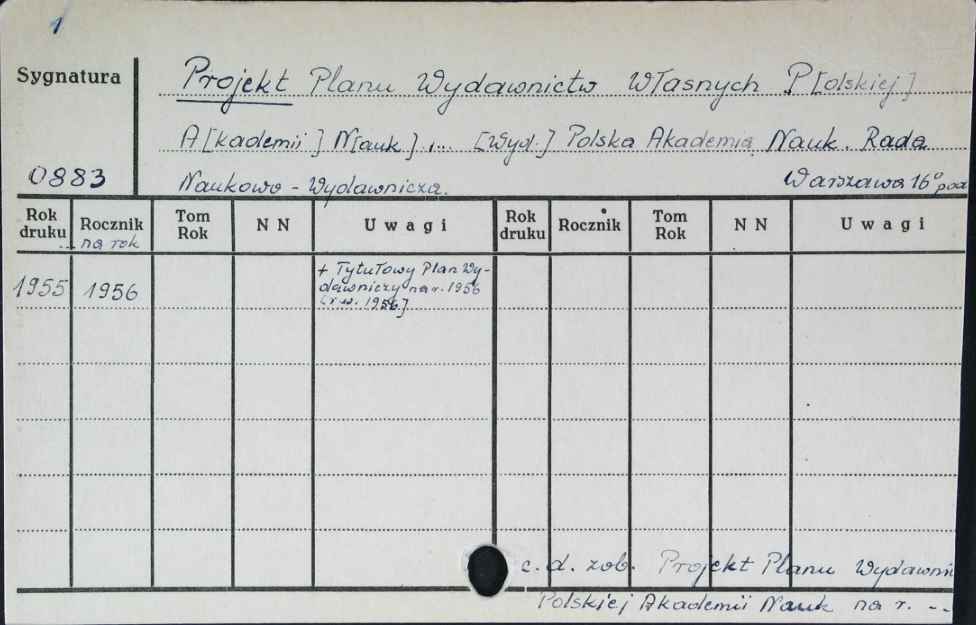 1
Sygnatura
Projekt Planu Wydawnictw Własnych P[olskiej]
A[kademii] N[auk] ... [Wyd.] Polska Akademia Nauk. Rada
0883
Naukowo - Wydawnicza. Warszawa 16°
Rok druku Rocznik na rok Tom Rok N N Uwagi Rok druku Rocznik Tom Rok N N Uwagi
1955 1956 + Tytułowy Plan Wy-
dawniczy na r. 1956
1956]
c. d. zob. Projekt Planu Wydawni
Polskiej Akademii Nauk na r. --